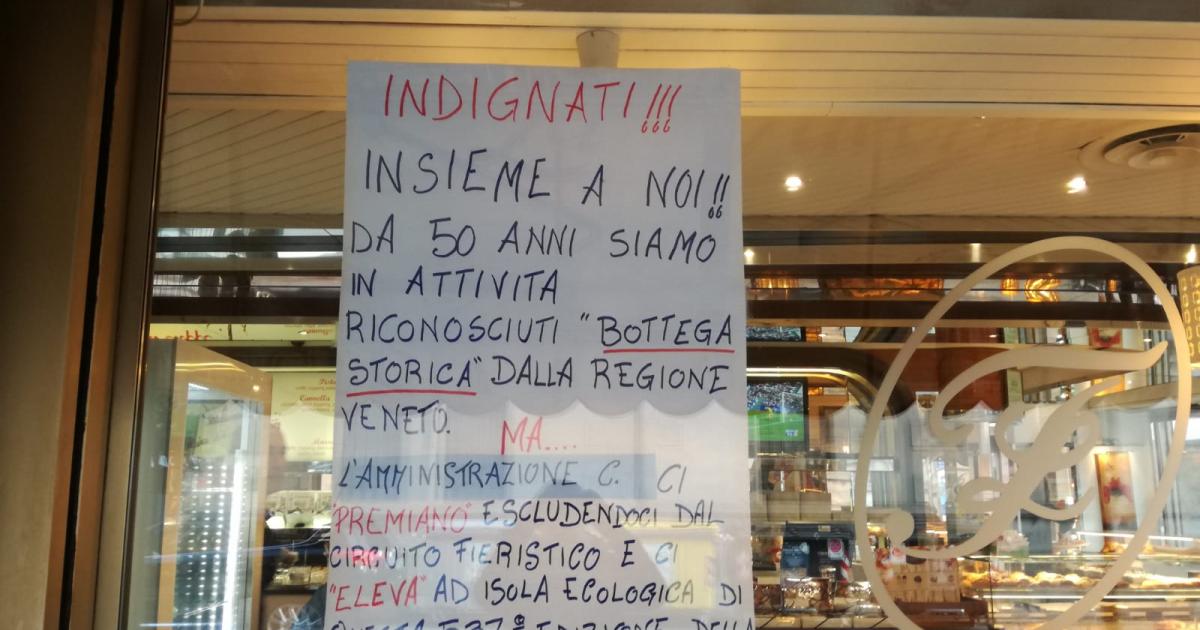 INDIGNATI!!!
INSIEME A NOI!!
DA 50 ANNI SIAMO
IN ATTIVITA
RICONOSCIUTI "BOTTEGA
STORICA" DALLA REGIONE
VENETO.
MA....
L'AMMINISTRAZIONE C. CI
"PREMIANO" ESCLUDENDOCI DAL
CIRCUITO FIERISTICO E CI
"ELEVA" AD ISOLA ECOLOGICA DI
EDIZIONE DELLA